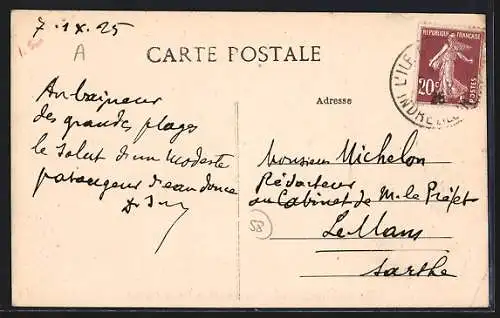 7. IX. 25
A
CARTE POSTALE
RÉPUBLIQUE FRANÇAISE
20c
POSTES
L'ILE
INDRE
Adresse
Au baigneur
des grandes plages
le salut d'un modeste
pataugeur d'eau douce
Monsieur Michelon
Rédacteur
au Cabinet de M. le Préfet
Le Mans
Sarthe
58